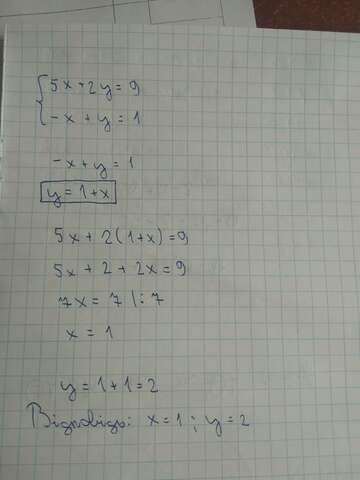 5x + 2y = 9
-x + y = 1
-x + y = 1
y = 1 + x
5x + 2(1+x) = 9
5x + 2 + 2x = 9
7x = 7 |: 7
x = 1
y = 1 + 1 = 2
Відповідь: x = 1 ; y = 2